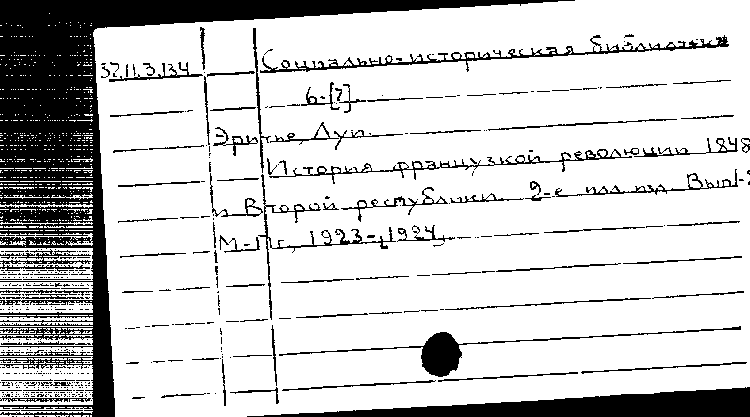 37.11.3.134 Социально-историческая библиотека
6-[7].
Эритье, Луи.
История французской революции 1848
и Второй республики. 2-е илл. изд. Вып 1-
М.-Пг., 1923-[1924].